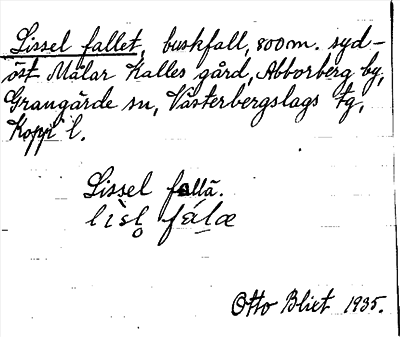 Lissel fallet, buskfall, 800 m. syd-
öst Målar Kalles gård, Abborberg by,
Grangärde sn, Västerbergslags tg,
Kopp l.
Lissel fallä.
lìsl̥ fála
Otto Blixt 1935.